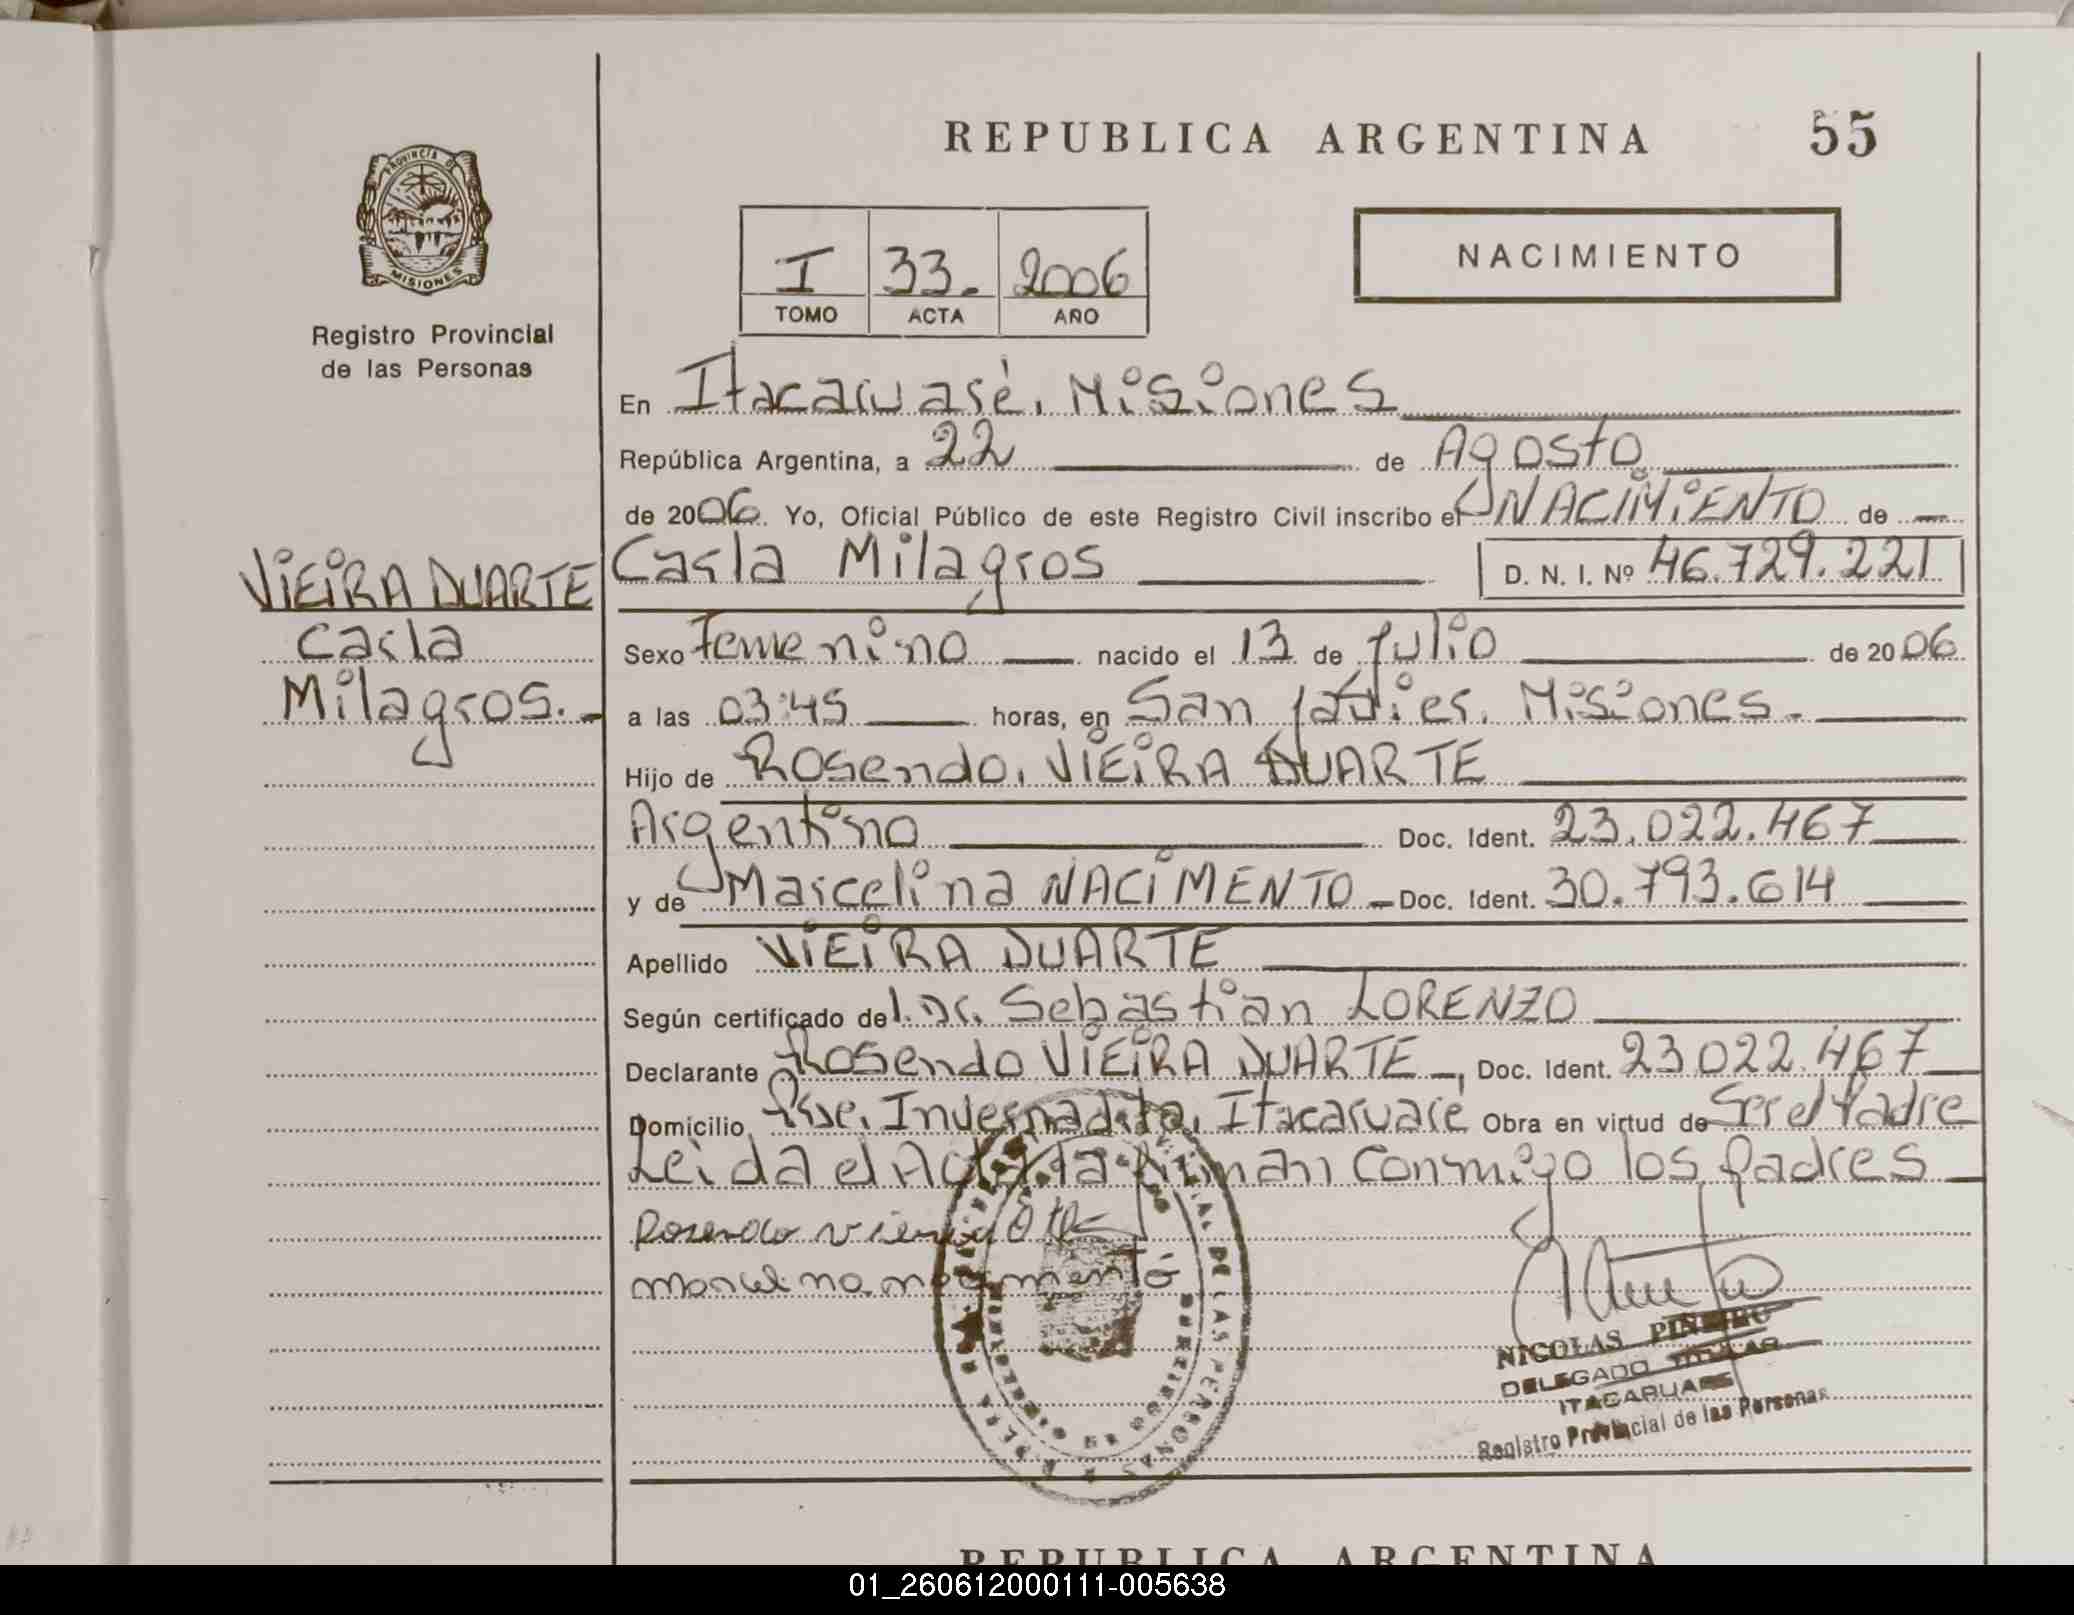 REPUBLICA ARGENTINA 55
PROVINCIA DE
MISIONES
Registro Provincial
de las Personas
NACIMIENTO
I 33. 2006
TOMO ACTA AÑO
En Itacaruaré, Misiones
República Argentina, a 22 de Agosto
de 2006. Yo, Oficial Público de este Registro Civil inscribo el NACIMIENTO de
VIEIRA DUARTE
Carla
Milagros.-
Carla Milagros D. N. I. Nº 46.729.221
Sexo Femenino nacido el 13 de Julio de 2006
a las 03:45 horas, en San Javier. Misiones.
Hijo de Rosendo, VIEIRA DUARTE
Argentino Doc. Ident. 23.022.467
y de Marcelina NACIMENTO Doc. Ident. 30.793.614
Apellido VIEIRA DUARTE
Según certificado del. Dr. Sebastian LORENZO
Declarante Rosendo VIEIRA DUARTE, Doc. Ident. 23022.467
Domicilio Pje. Invernadita, Itacaruaré Obra en virtud de Ser el Padre
Leida el Acta la firman conmigo los padres
Rosendo vieira Dte
marcelina nacimento
NICOLAS PIÑEIRO
DELEGADO TITULAR
ITACARUARE
Registro Provincial de las Personas
DE LAS PERSONAS
REPUBLICA ARGENTINA
01_260612000111-005638